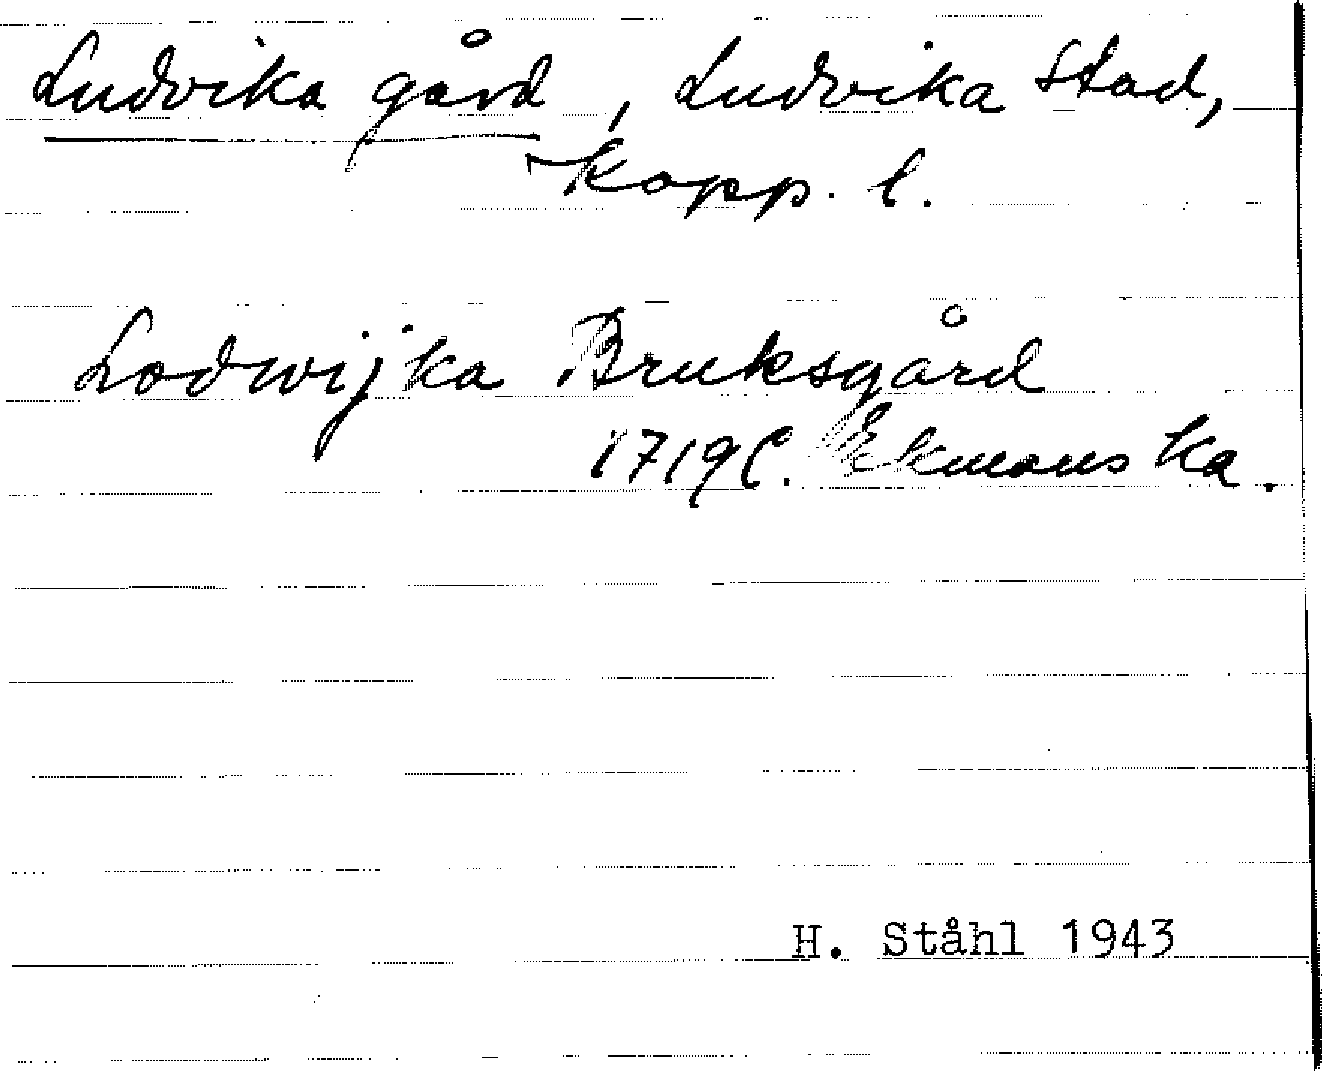 Ludvika gård, Ludvika stad,
Kopp. l.
Lodwijka Bruksgård
1719 C. Ekmans ka.
H. Ståhl 1943